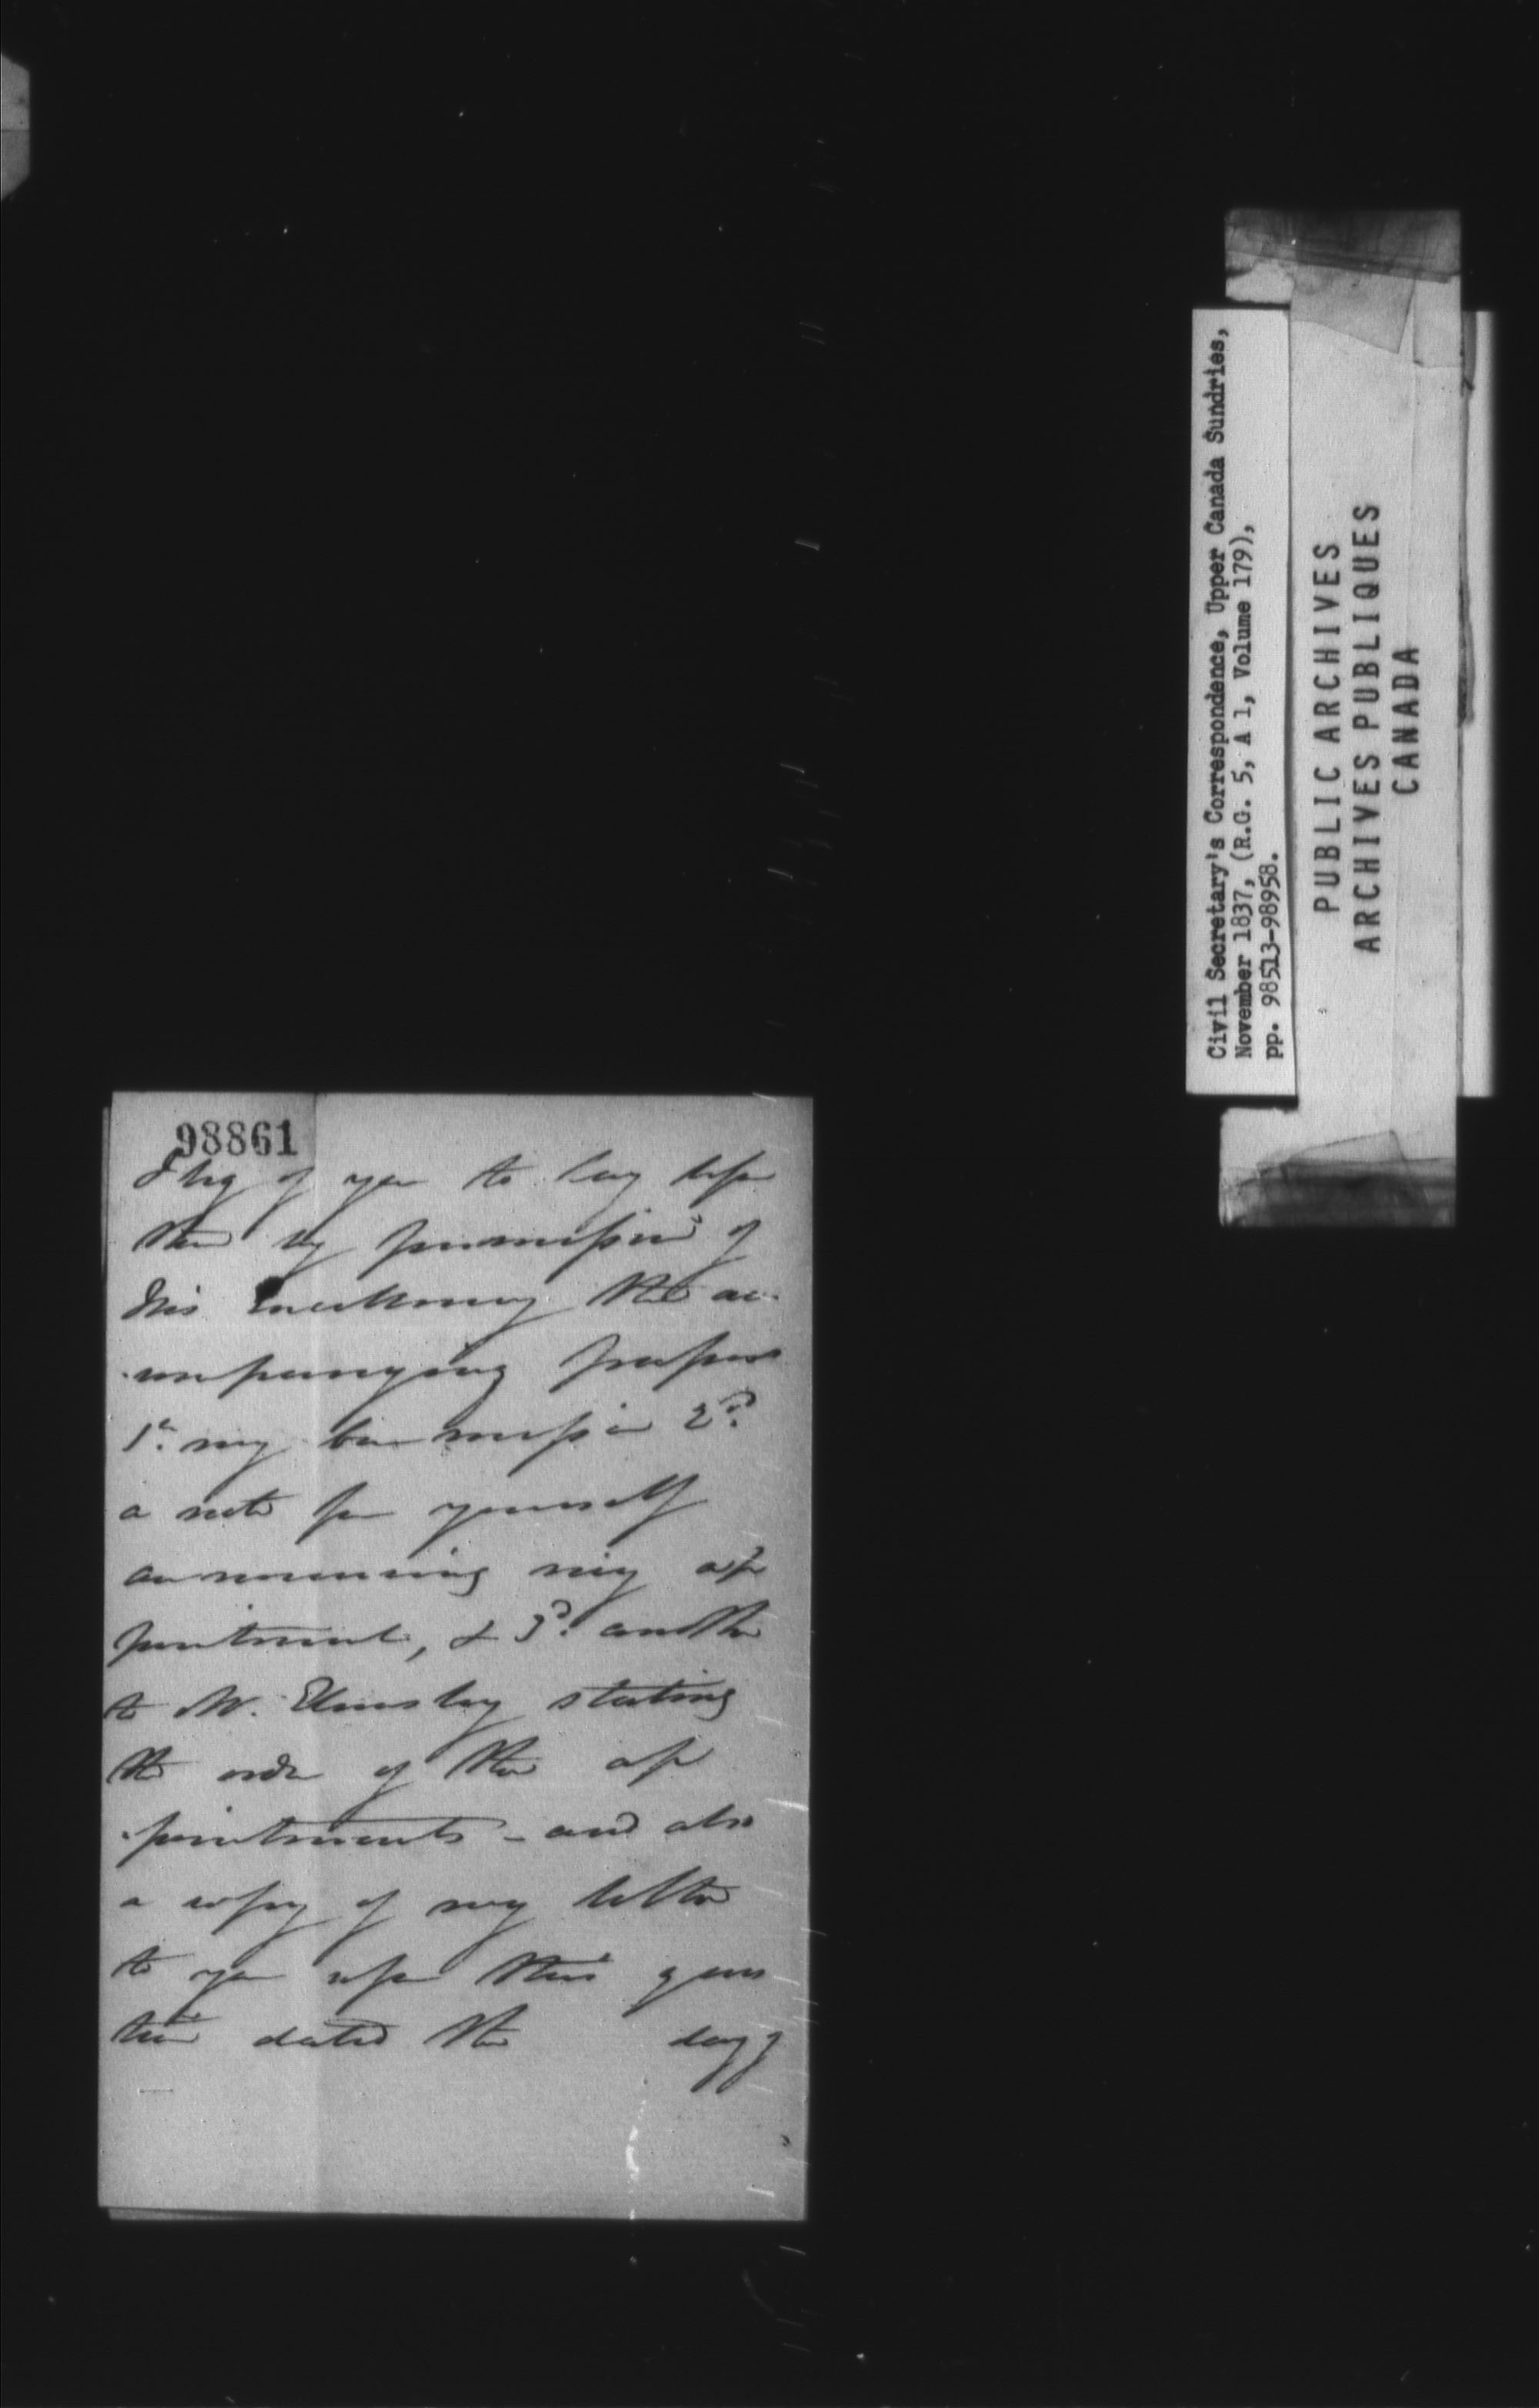 98861
I beg of you to lay befor
them by permission of
His Excellency the ac-
companying papers
1st. my Commission 2d.
a note from yourself
announcing my ap
pointment, & 3d. another
to Mr. Elmsley stating
the order of the ap
pointments - and also
a copy of my letter
to you upon this ques
tion dated the day of
Civil Secretary's Correspondence, Upper Canada Sundries,
November 1837, (R.G. 5, A 1, Volume 179),
pp. 98513-98958.
PUBLIC ARCHIVES
ARCHIVES PUBLIQUES
CANADA